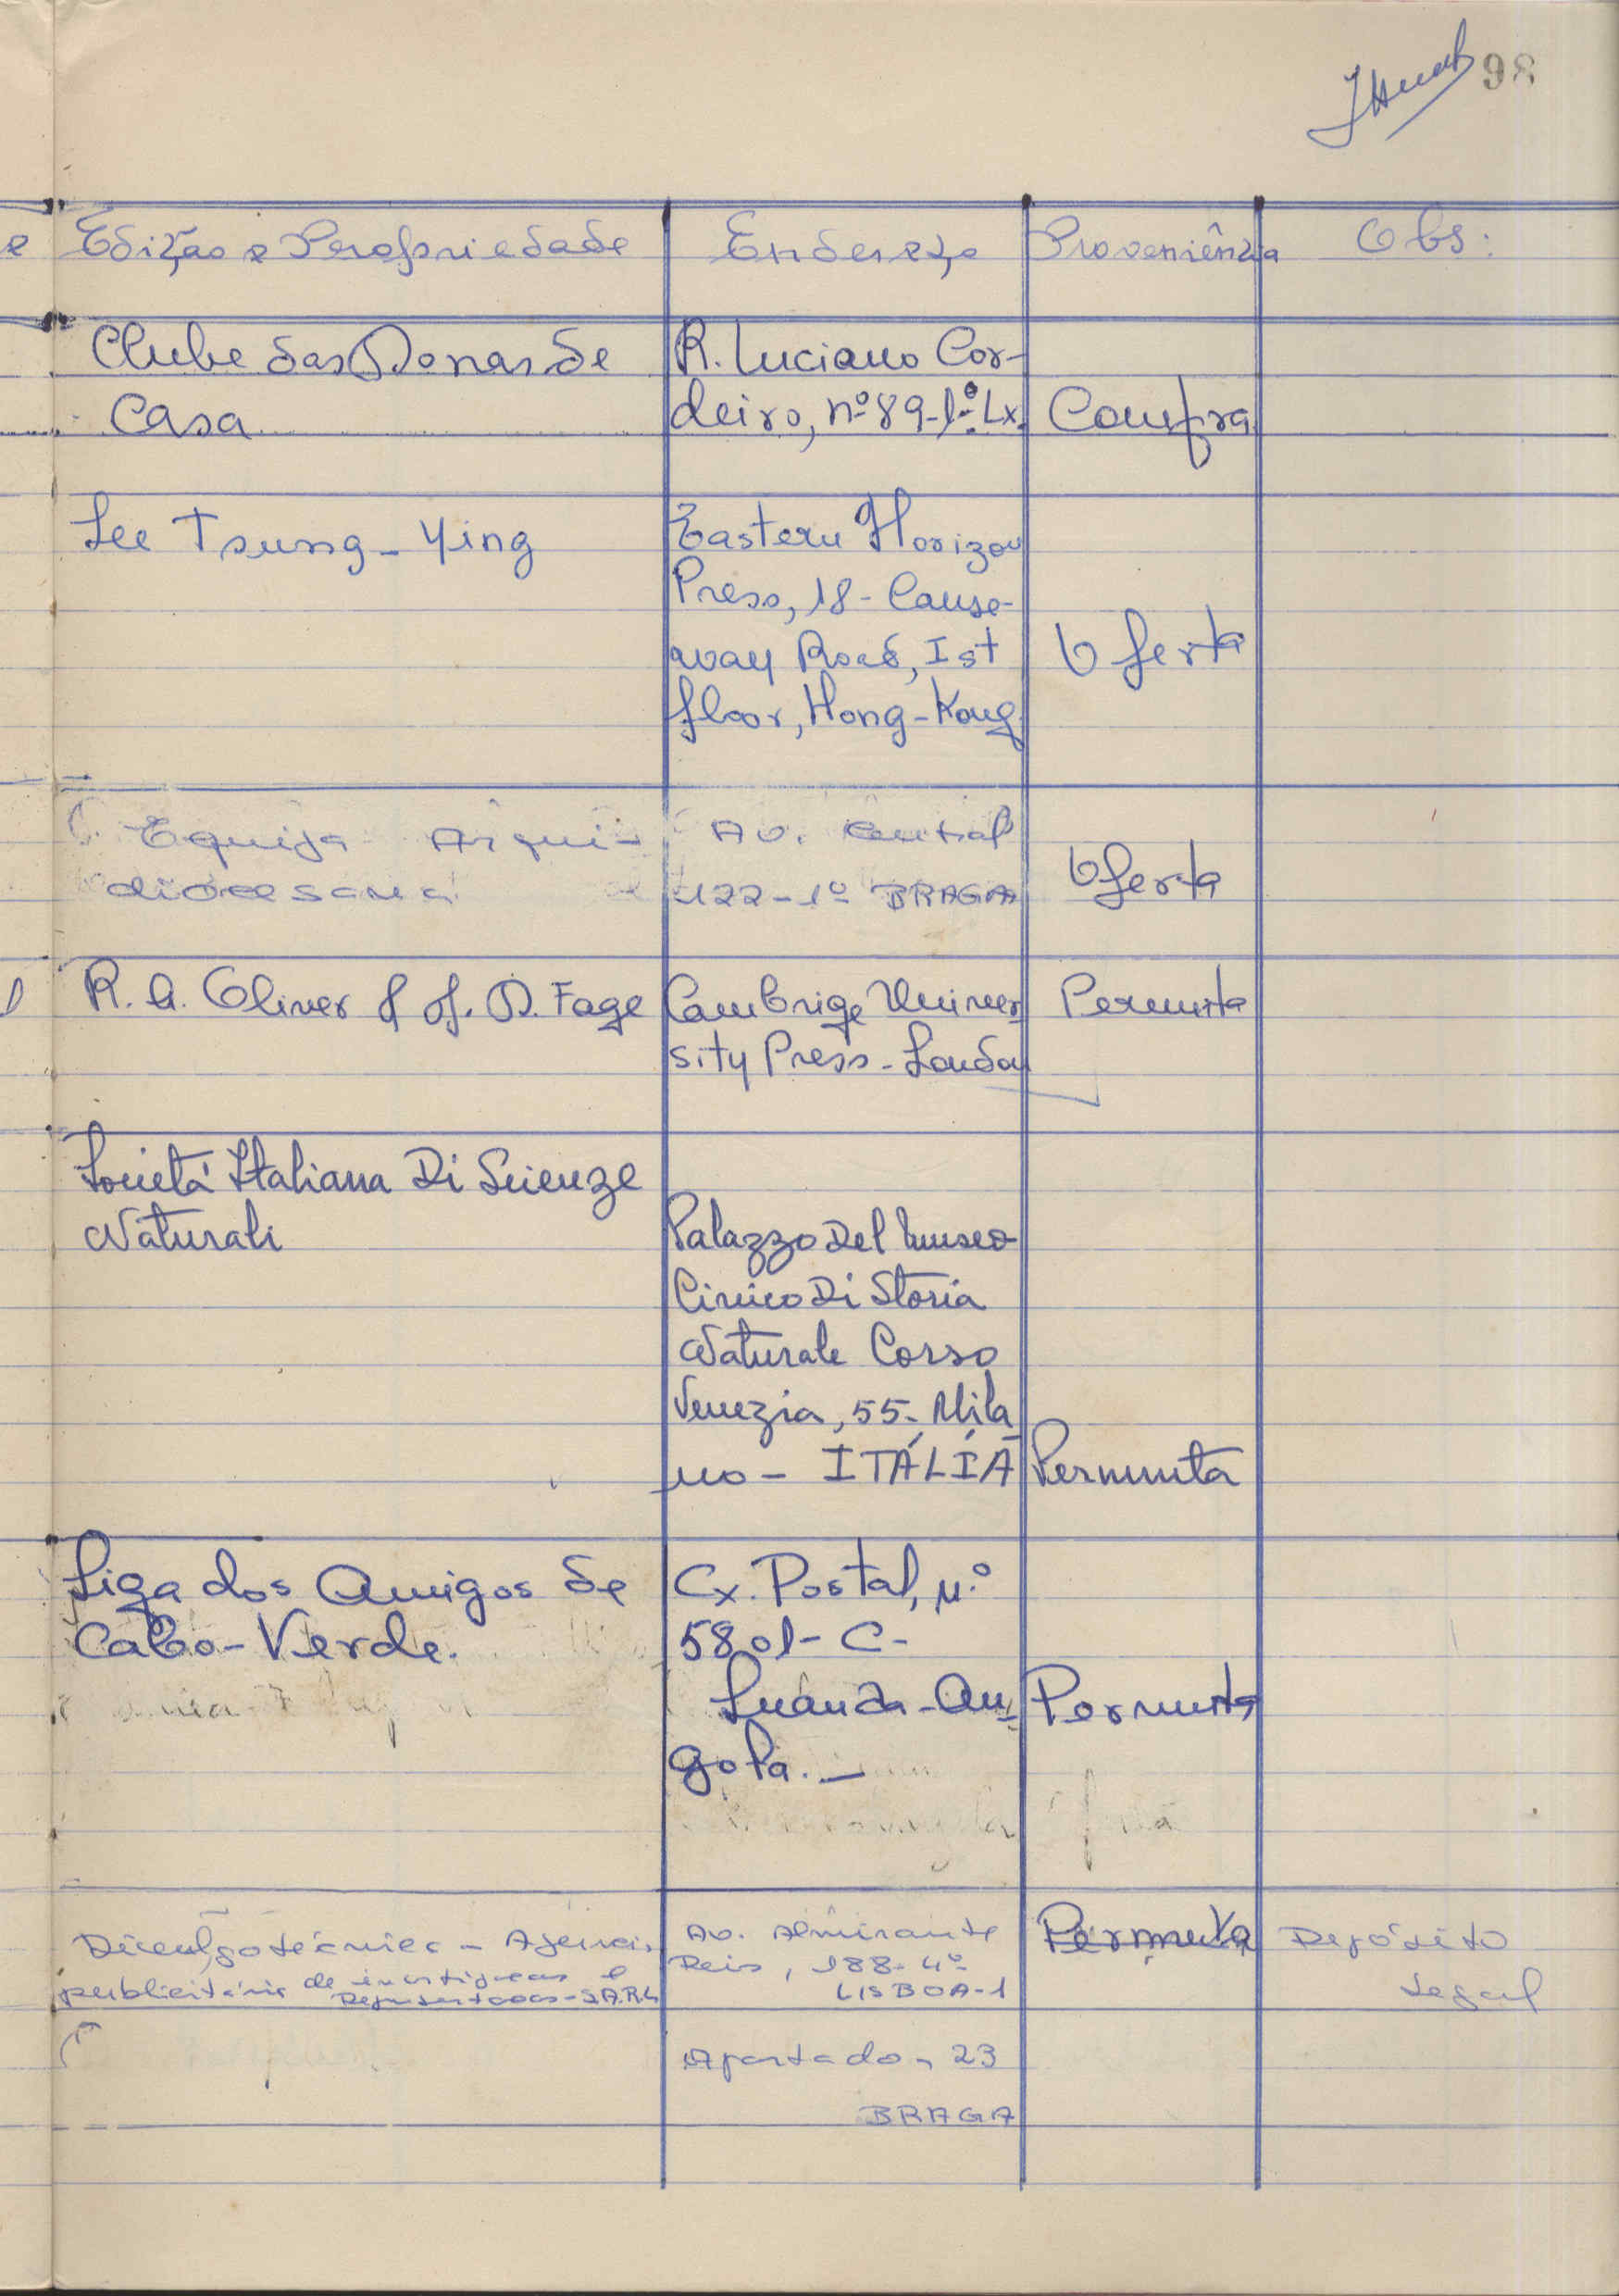 98
Edição e Propriedade Endereço Proveniência Obs:
Clube das Donas de
Casa
R. Luciano Cor-
deiro, nº 89-1º. Lx.
Compra
Lee Tsung-Ying
Eastern Horizon
Press, 18- Cause-
way Road, Ist
floor, Hong-Kong
Oferta
Equipa Arqui-
diocesana
Av. Central
122-1º BRAGA
Oferta
R. A. Oliver & J. D. Fage
Cambrige Univer
sity Press - London
Permuta
Societá Italiana Di Scienze
Naturali
Palazzo Del Museo
Civico Di Storia
Naturale Corso
Venezia, 55- Mila
no - ITÁLÍA
Permuta
Liga dos Amigos de
Cabo-Verde.
Cx. Postal, n.º
5801- C-
Luanda-An-
gola. _
Permuta
publicitária de
S.A.R.L
Av. Almirante
Reis, 188-4º
LISBOA-1
Permuta
Depósito
Legal
Apartado - 23
BRAGA